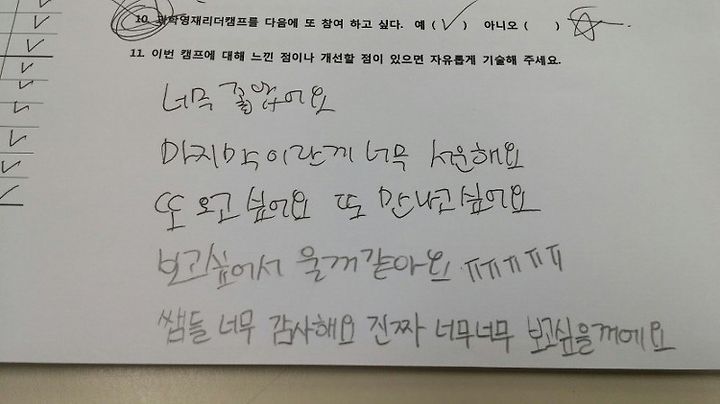 10. 과학영재리더캠프를 다음에 또 참여 하고 싶다. 예 (✓) 아니오 ( )
11. 이번 캠프에 대해 느낀 점이나 개선할 점이 있으면 자유롭게 기술해 주세요.
너무 좋았어요
마지막이란게 너무 서운해요
또 오고 싶어요 또 만나고싶어요
보고싶어서 울꺼같아요 ㅠㅠㅠㅠㅠ
쌤들 너무 감사해요 진짜 너무너무 보고싶을꺼에요